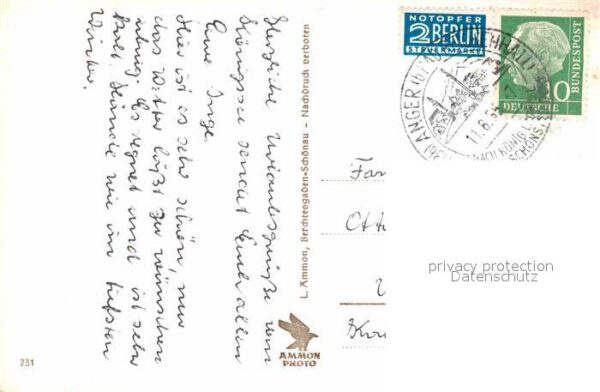 Herzliche Urlaubsgrüße vom
Königssee sendet Euch allen
Eure Inge.
Hier ist es sehr schön, nur
das Wetter läßt zu wünschen
übrig. Es regnet und ist sehr
kalt. Stunde wie im tiefsten
Winter.
L. Ammon, Berchtesgaden-Schönau – Nachdruck verboten
AMMON
PHOTO
231
NOTOPFER
2 BERLIN
STEUERMARKE
DEUTSCHE
BUNDESPOST
10
ANGER
11.8.5
NACH KÖNIG
SCHÖNS
Fam
Otto
privacy protection
Datenschutz